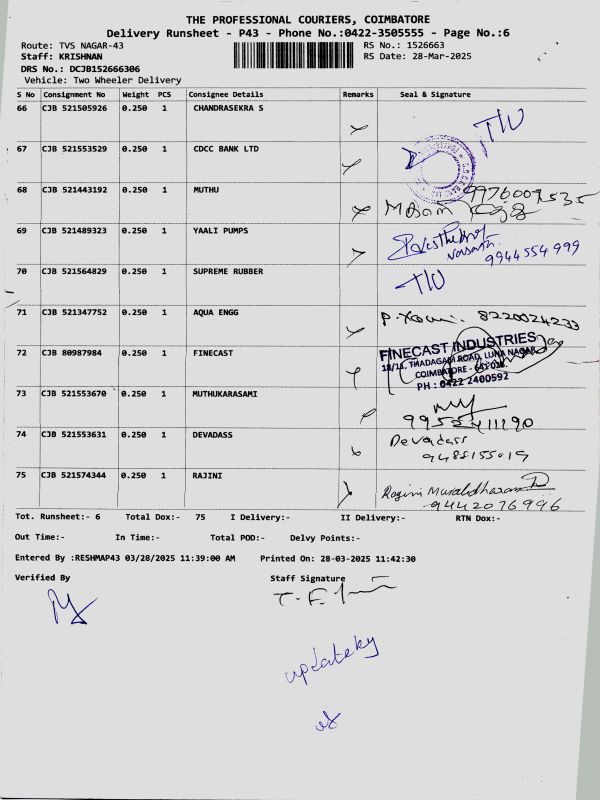 THE PROFESSIONAL COURIERS, COIMBATORE
Delivery Runsheet - P43 - Phone No.:0422-3505555 - Page No.:6
Route: TVS NAGAR-43 RS No.: 1526663
Staff: KRISHNAN RS Date: 28-Mar-2025
DRS No.: DCJB152666306
Vehicle: Two Wheeler Delivery
S No Consignment No Weight PCS Consignee Details Remarks Seal & Signature
66 CJB 521505926 0.250 1 CHANDRASEKRA S
67 CJB 521553529 0.250 1 CDCC BANK LTD
68 CJB 521443192 0.250 1 MUTHU
9976009535
69 CJB 521489323 0.250 1 YAALI PUMPS
9944554999
70 CJB 521564829 0.250 1 SUPREME RUBBER
71 CJB 521347752 0.250 1 AQUA ENGG
8220024233
72 CJB 80987984 0.250 1 FINECAST
FINECAST INDUSTRIES
18/11, THADAGAM ROAD, LUNA NAGAR
COIMBATORE - 641 025.
PH : 0422 2400592
73 CJB 521553670 0.250 1 MUTHUKARASAMI
74 CJB 521553631 0.250 1 DEVADASS
Devadass
9488155019
75 CJB 521574344 0.250 1 RAJINI
Ragini Muralidharan
9442076996
Tot. Runsheet:- 6 Total Dox:- 75 I Delivery:- II Delivery:- RTN Dox:-
Out Time:- In Time:- Total POD:- Delvy Points:-
Entered By :RESHMAP43 03/28/2025 11:39:00 AM Printed On: 28-03-2025 11:42:30
Verified By Staff Signature